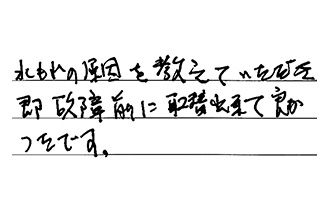 水もれの原因を教えていただき
即故障前に取替出来て良か
ったです。